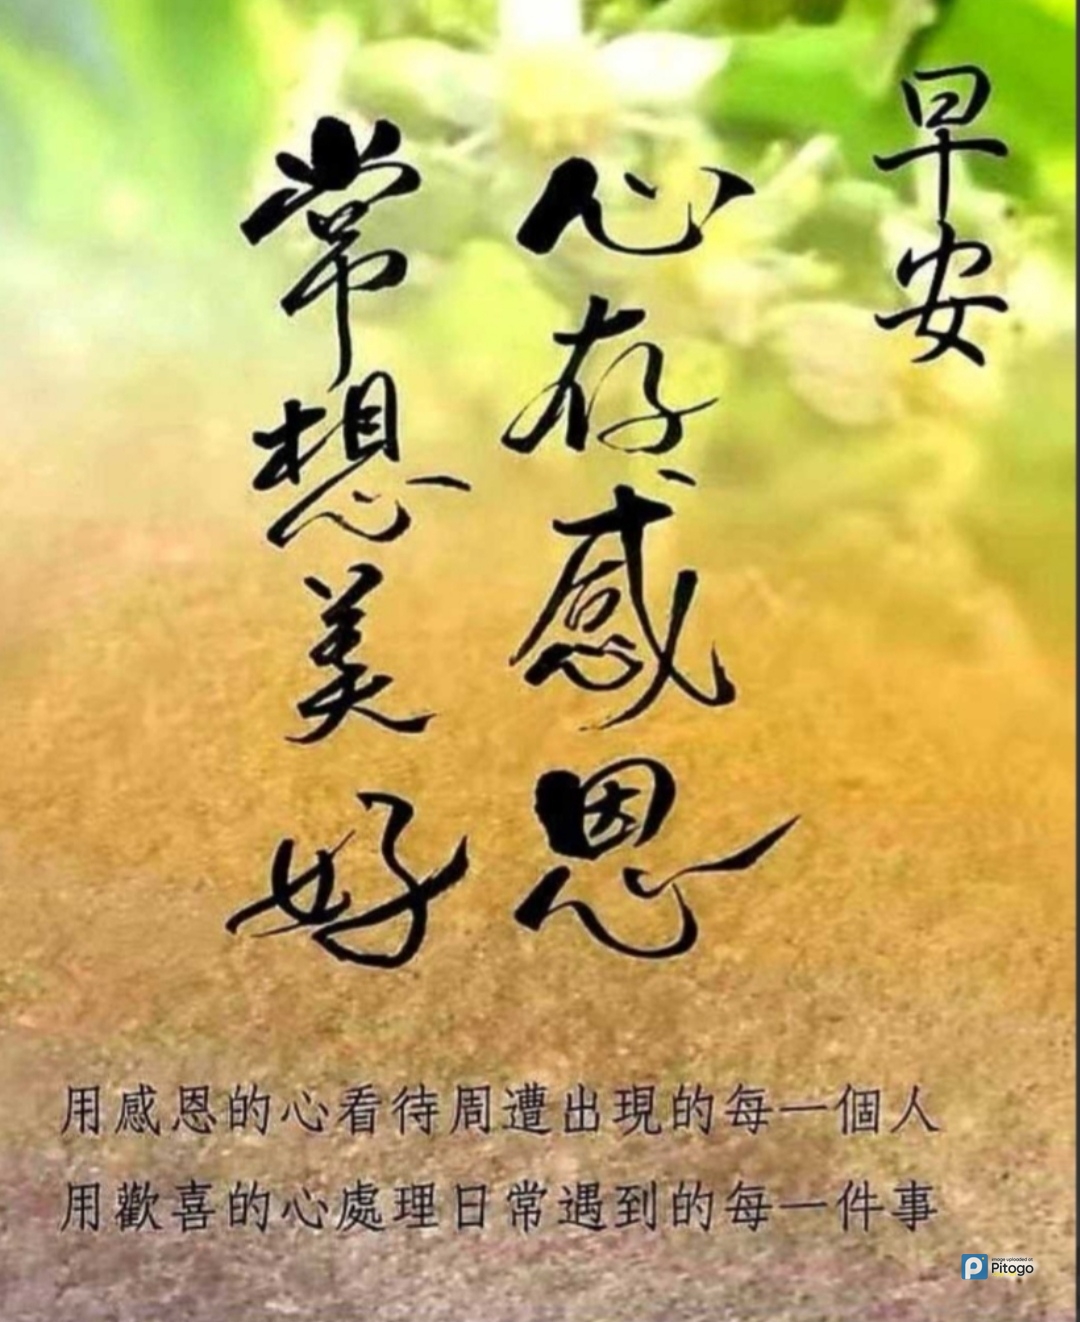 早安
心存感恩
常想美好
用感恩的心看待周遭出現的每一個人
用歡喜的心處理日常遇到的每一件事
Image uploaded at
Pitogo